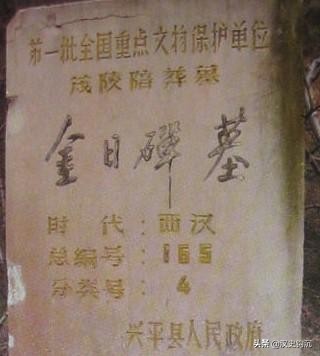 第一批全国重点文物保护单位
茂陵陪葬墓
金日磾墓
时代：西汉
总编号：165
分类号：4
兴平县人民政府
头条@汉史钩沉